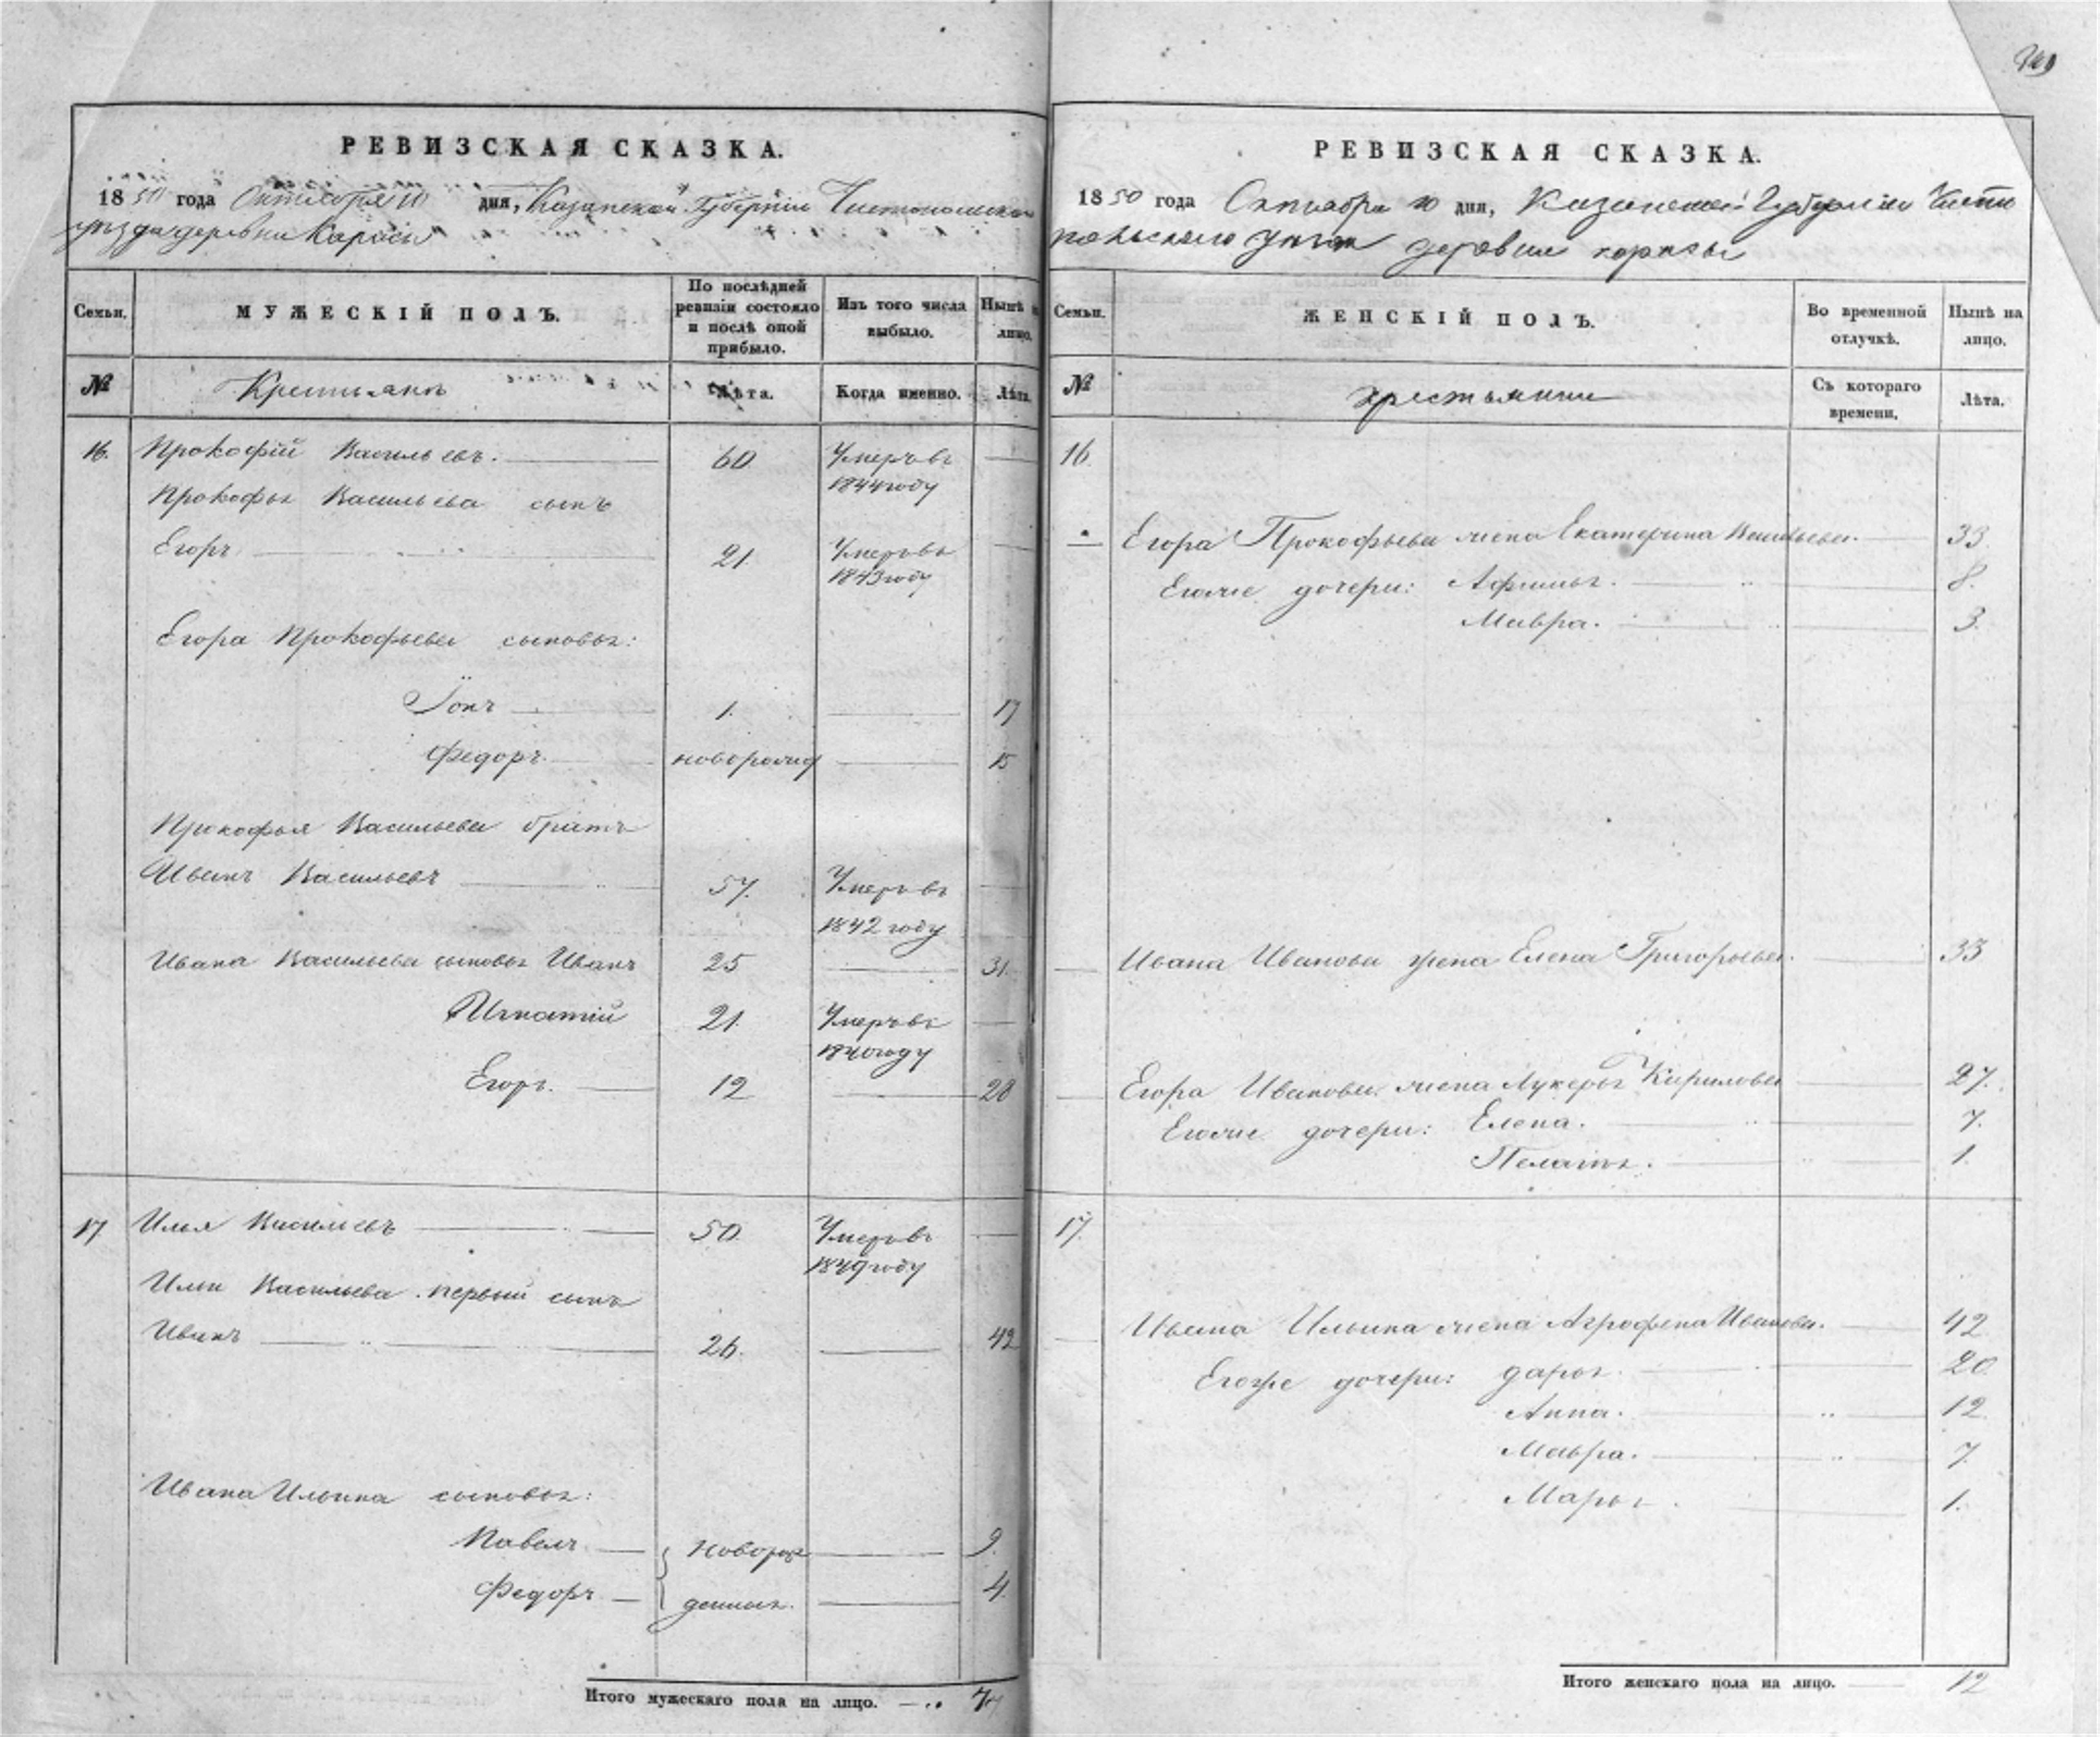 РЕВИЗСКАЯ СКАЗКА.
1850 года Октября 10 дня, Казанской Губерніи Чистопольскаго
уезда деревни Каросы
Семьи.
МУЖЕСКІЙ ПОЛЪ.
По послѣдней
ревизіи состояло
и послѣ оной
прибыло.
Изъ того числа
выбыло.
Нынѣ
лицо.
№
Крестьянъ
Лѣта.
Когда именно.
Лѣта.
16. Прокофій Васильевъ. 60 Умеръ въ
1844 году
Прокофья Васильева сынъ
Егоръ 21. Умеръ въ
1843 году
Егора Прокофьева сыновья:
Іонъ 1. 17
Федоръ. новорожд 15
Прокофья Васильева братъ
Иванъ Васильевъ 57. Умеръ въ
1842 году
Ивана Васильева сыновья Иванъ 25 31.
Игнатій 21. Умеръ въ
1840 году
Егоръ. 12 28
17 Илья Васильевъ 50. Умеръ въ
1849 году
Ильи Васильева первый сынъ
Иванъ 26. 42
Ивана Ильина сыновья:
Павелъ новорож 9.
Федоръ денныя. 4.
Итого мужескаго пола на лицо. 7
РЕВИЗСКАЯ СКАЗКА.
1850 года Октября 10 дня, Казанской Губерніи Чисто
польскаго уезда деревни каросы
Семьи.
ЖЕНСКІЙ ПОЛЪ.
Во временной
отлучкѣ.
Нынѣ на
лицо.
№
крестьянки
Съ котораго
времени.
Лѣта.
16.
Егора Прокофьева жена Екатерина Васильева. 33.
Егоже дочери: Афимья. 8.
Мавра. 3.
Ивана Иванова жена Елена Григорьева. 33
Егора Иванова жена Лукерья Кирилова 27.
Егоже дочери: Елена. 7.
Пелагья. 1.
17.
Ивана Ильина жена Агрофена Иванова. 42
Егоже дочери: дарья. 20
Анна. 12
Мавра. 7.
Марья. 1.
Итого женскаго пола на лицо. 12